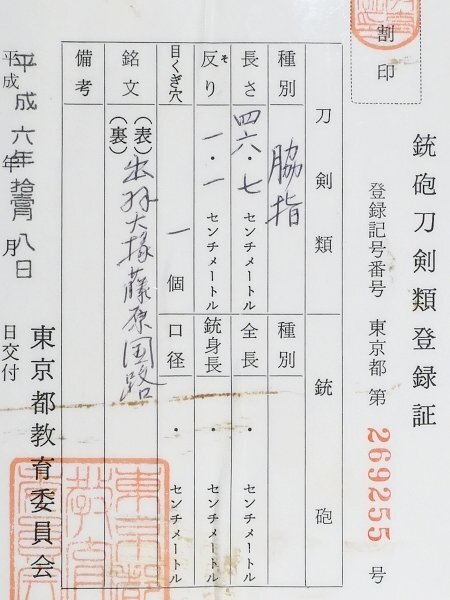 割印
銃砲刀剣類登録証
登録記号番号 東京都 第 269255 号
刀剣類 銃砲
種別 脇指 種別
長さ 四六・七 センチメートル 全長 ・ センチメートル
反り そ 一・一 センチメートル 銃身長 ・ センチメートル
目くぎ穴 一 個 口径 ・ センチメートル
銘文 (表) 出羽大掾藤原国路
(裏)
備考
平成六年拾壹月八日
平成 年 月 日交付
東京都教育委員会